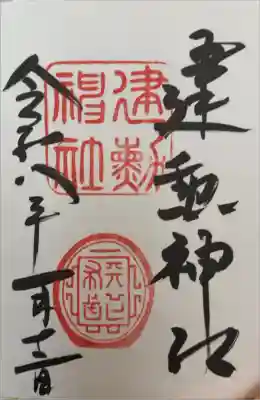 建勲神社
建勲
神社
令和八年一月十二日